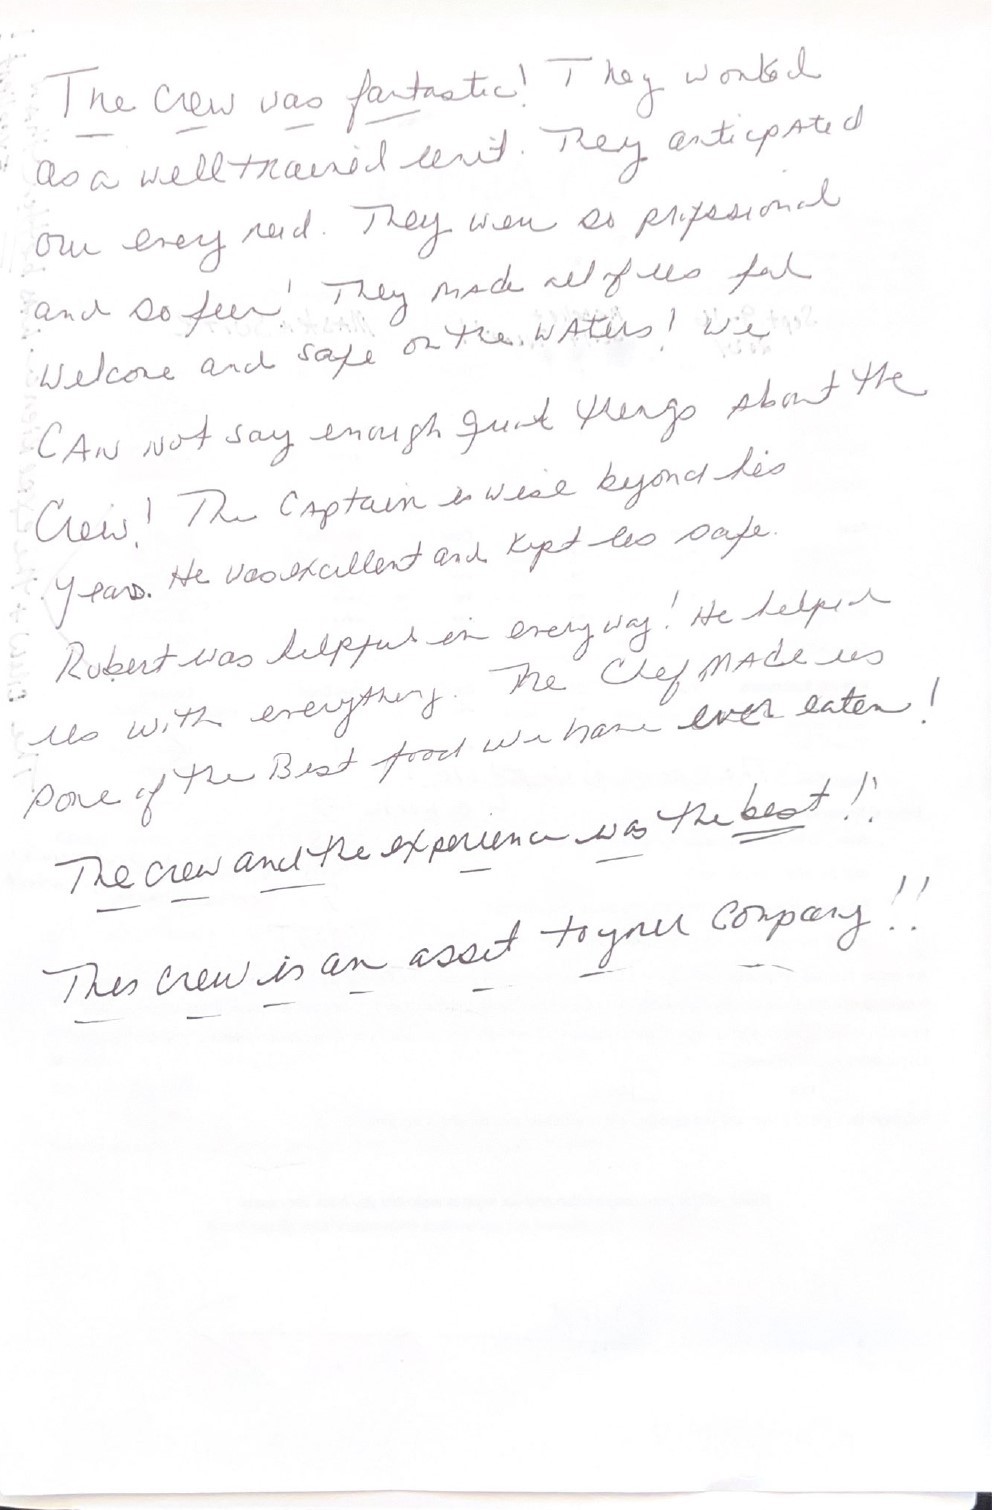 The crew was fantastic! They worked
as a well trained unit. They anticipated
our every need. They were so professional
and so fun! They made all of us feel
welcome and safe on the waters! We
CAN not say enough great things about the
Crew! The Captain is wise beyond his
years. He was excellent and kept us safe.
Robert was helpful in every way! He helped
us with everything. The Chef MADE us
some of the Best food we have ever eaten!
The crew and the experience was the best!!
This crew is an asset to your company!!